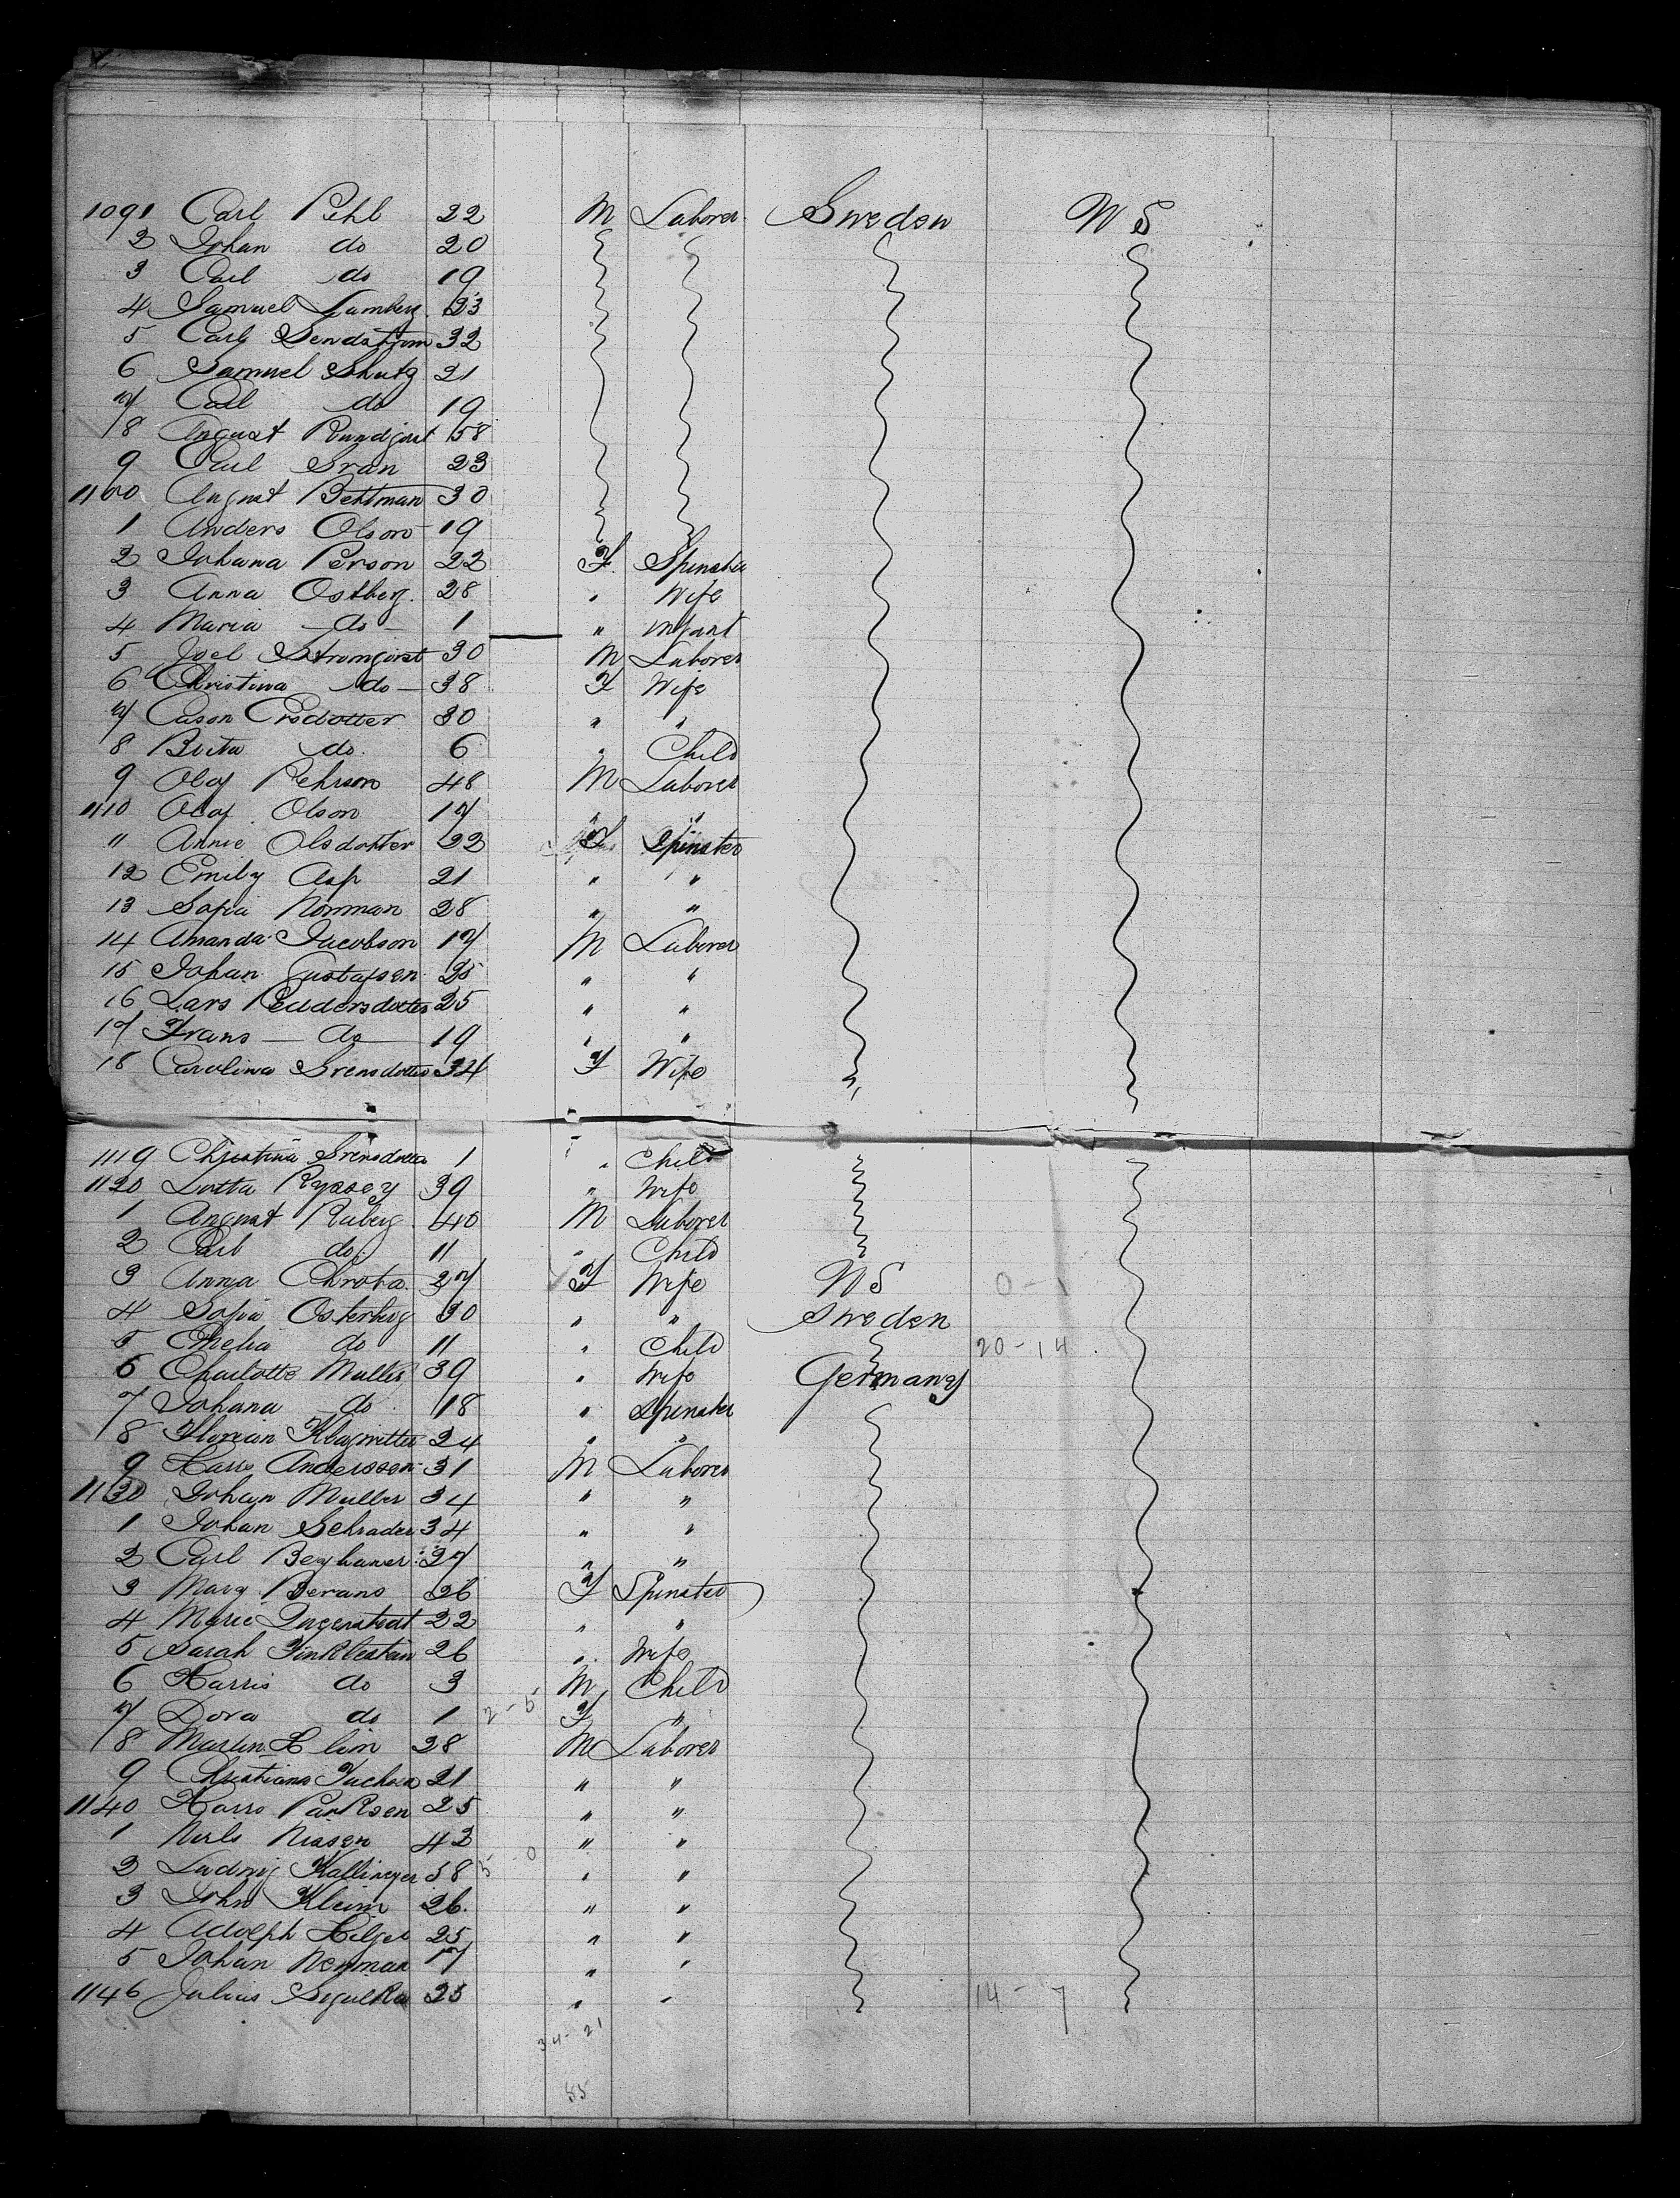 1091 Carl Pehl 22 M Laborer Sweden U S
2 Johan do 20
3 Carl do 19
4 Samuel Lamberg 23
5 Carl Sendstrom 32
6 Samuel Shutz 21
7 Carl do 19
8 August Rundqvist 58
9 Carl Svan 23
1100 August Behtman 30
1 Anders Olson 19
2 Johana Person 22 F. Spinster
3 Anna Ostberg. 28 " Wife
4 Maria do 1 " Infant
5 Joel Stromqvist 30 M Laborer
6 Christina do 38 F Wife
7 Ersdotter 30 " "
8 Brita do. 6 " Child
9 Olof Pehrson 48 M Laborer
1110 Olof Olson 17 " "
11 Annie Olsdotter 22 F Spinster
12 Emily Asp 21 " "
13 Sofia Norman 28 " "
14 Amanda Jacobson 17 M Laborer
15 Johan Gustafsen 25 " "
16 Lars 25 " "
17 Frans do 19 " "
18 Carolina Svensdotter 34 F Wife
1119 Christina Svensdotter 1 " Child
1120 Lotta 39 " Wife
1 August Ruberg 40 M Laborer
2 Carl do 11 " Child
3 Anna 27 F Wife U S 0 -
4 Sofia Osterberg 30 " " Sweden
5 Emelia do 11 " Child 20 - 14
6 Charlotte Muller 39 " Wife Germany
7 Johana do 18 " Spinster
8 Florian 24 " "
9 Harro Anderssen 31 M Laborer
1130 Johan Muller 34 " "
1 Johan Schrader 34 " "
2 Carl 27 " "
3 Mary Berans 26 F Spinster
4 Marie 22 " "
5 Sarah Finklestein 26 " Wife
6 Harris do 3 M Child
7 Dora do 1 2 - 5 F "
8 Martin 28 M Laborer
9 Christians 21 " "
1140 Harro Parksen 25 " "
1 Niels Nissen 42 " "
2 Ludwig 38 5 0 " "
3 John Kleim 26. " "
4 Adolph Hilger 25 " "
5 Johan Neuman 17 " "
1146 Julius 25 " " 14 - 7
34 - 21
55